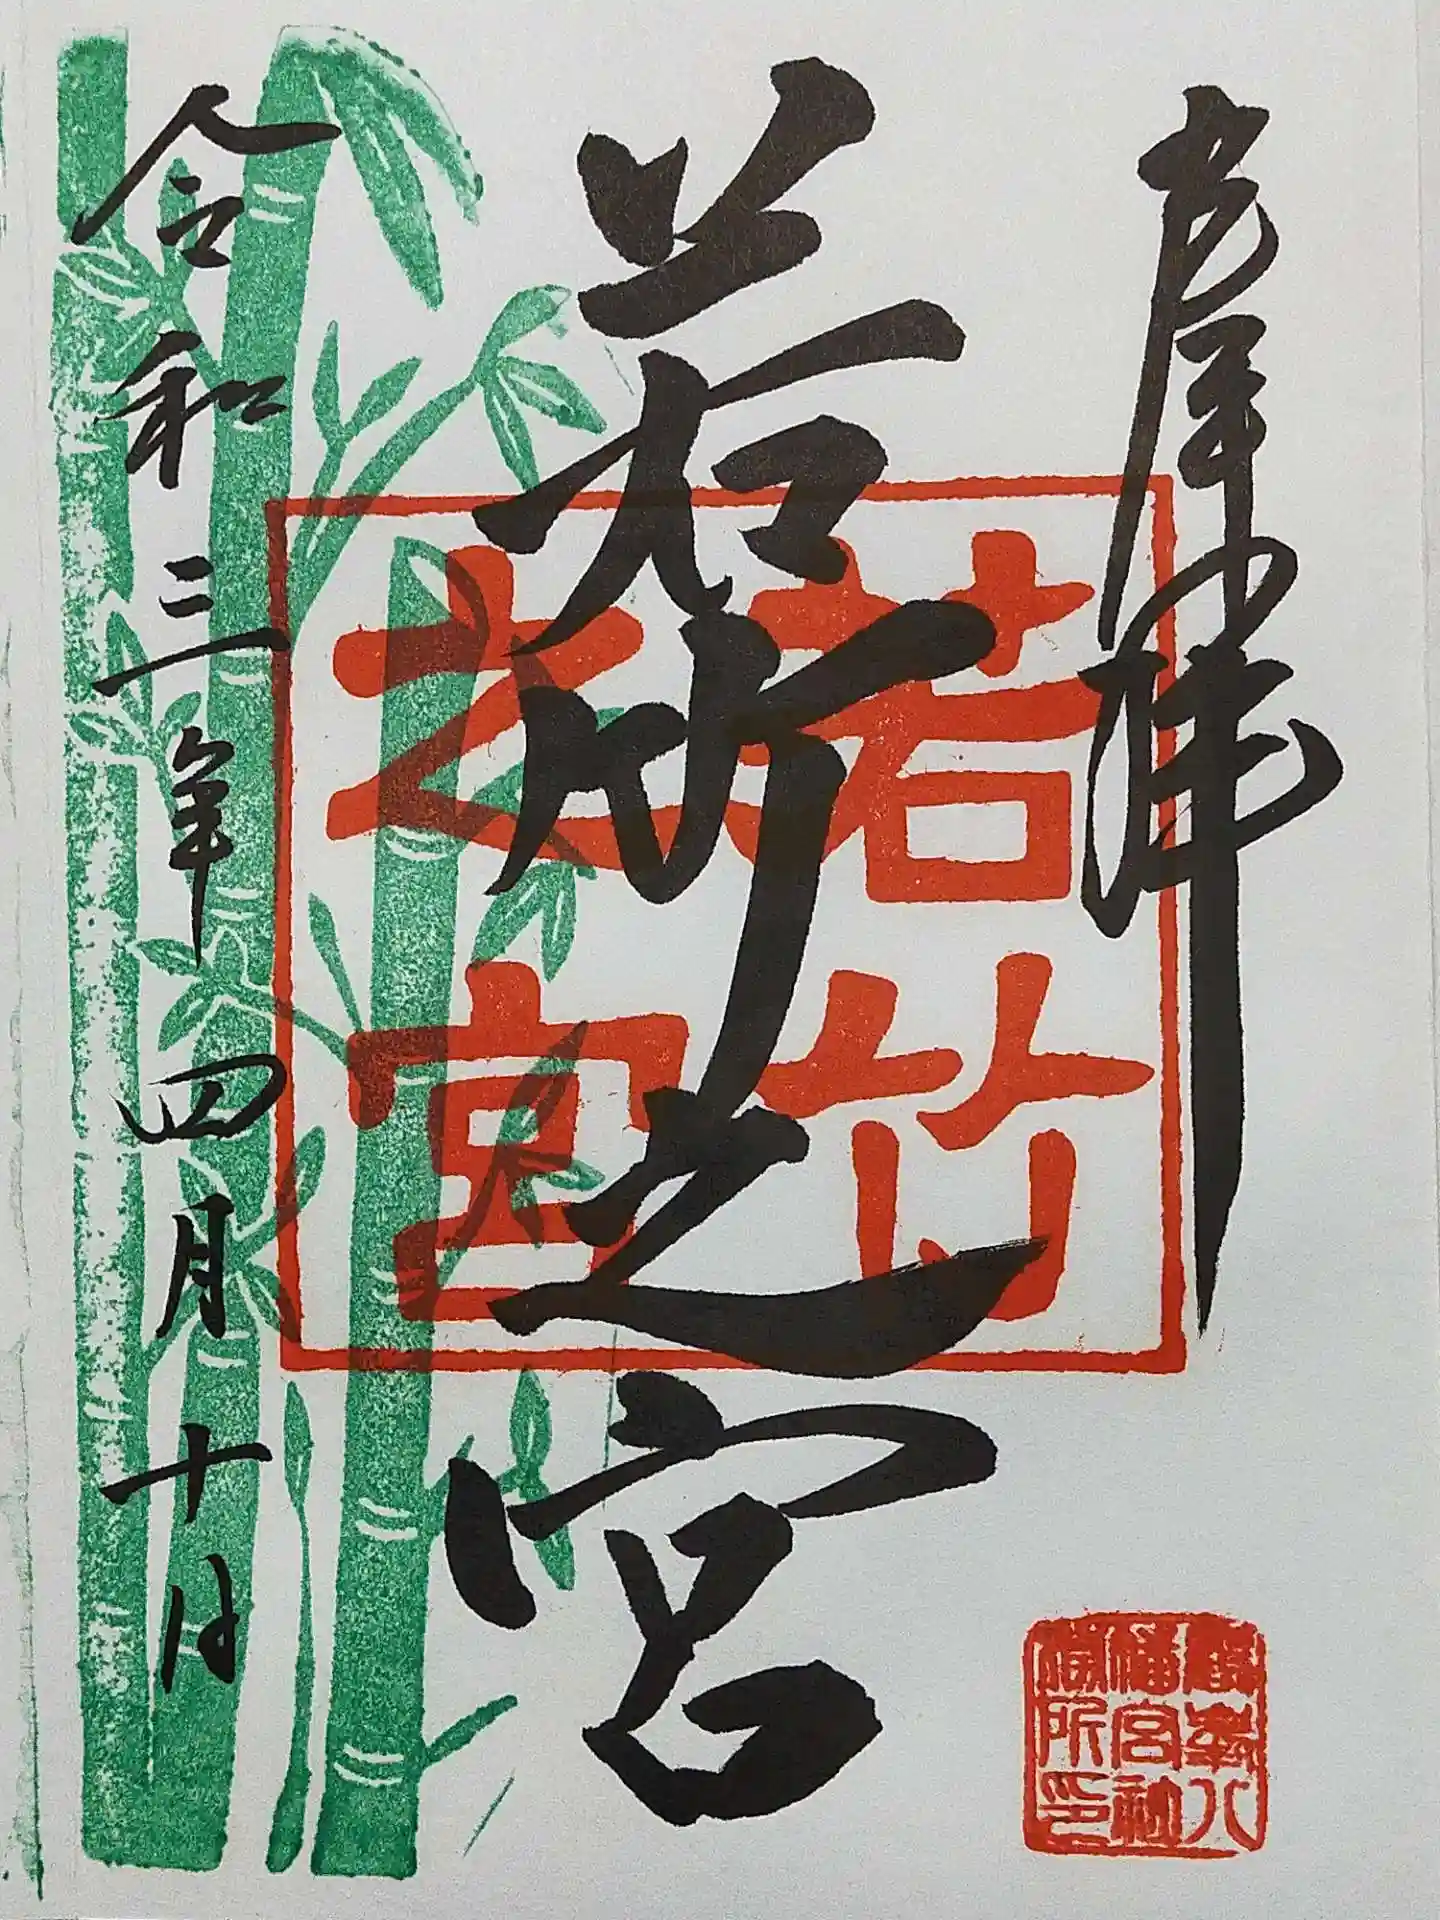 若竹之宮
令和三年四月十日
若竹
之宮
八
幡宮社
務所印